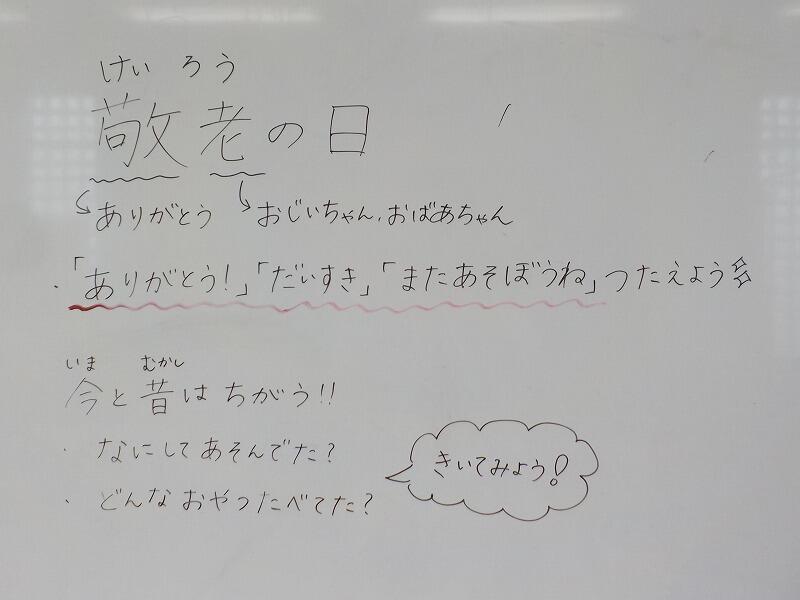 けい ろう
敬老の日
ありがとう おじいちゃん、おばあちゃん
・「ありがとう!」「だいすき」「またあそぼうね」つたえよう
いま むかし
今と昔はちがう!!
・ なにしてあそんでた?
・ どんなおやつたべてた?
きいてみよう!